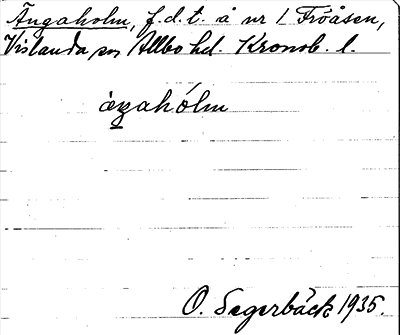 Ängaholm, f.d.t. å nr 1 Fröåsen,
Vislanda sn Allbo hd. Kronob. l.
O. Segerbäck 1935.